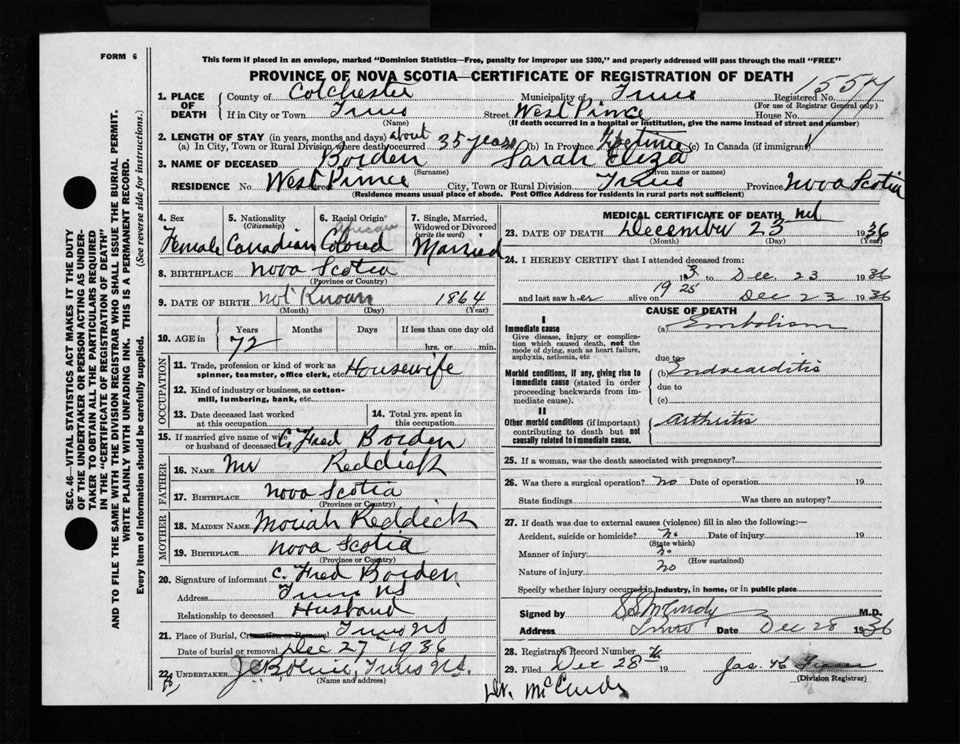 FORM 6
This form if placed in an envelope, marked "Dominion Statistics—Free, penalty for improper use $300," and properly addressed will pass through the mail "FREE"
PROVINCE OF NOVA SCOTIA—CERTIFICATE OF REGISTRATION OF DEATH
1. PLACE OF DEATH
County of Colchester Municipality of Truro Registered No.
(For use of Registrar General only)
If in City or Town Truro Street West Prince House No.
(Name) (If death occurred in a hospital or institution, give the name instead of street and number)
2. LENGTH OF STAY (in years, months and days) about
(a) In City, Town or Rural Division where death occurred 35 years (b) In Province Lifetime (c) In Canada (if immigrant)
3. NAME OF DECEASED Borden Sarah Eliza
(Surname) (Given name or names)
RESIDENCE No. West Prince City, Town or Rural Division Truro Province Nova Scotia
(Residence means usual place of abode. Post Office Address for residents in rural parts not sufficient)
4. Sex Female
5. Nationality (Citizenship) Canadian
6. Racial Origin African Colored
7. Single, Married, Widowed or Divorced (write the word) Married
8. BIRTHPLACE Nova Scotia
(Province or Country)
9. DATE OF BIRTH Not Known 1864
(Month) (Day) (Year)
10. AGE in Years 72 Months Days If less than one day old
hrs. or min.
OCCUPATION
11. Trade, profession or kind of work as spinner, teamster, office clerk, etc. Housewife
12. Kind of industry or business, as cotton-mill, lumbering, bank, etc.
13. Date deceased last worked at this occupation
14. Total yrs. spent in this occupation
15. If married give name of wife or husband of deceased C. Fred Borden
FATHER
16. NAME Mr Reddick
17. BIRTHPLACE Nova Scotia
(Province or Country)
MOTHER
18. MAIDEN NAME Moriah Reddick
19. BIRTHPLACE Nova Scotia
(Province or Country)
20. Signature of informant C. Fred Borden
Address Truro NS
Relationship to deceased Husband
21. Place of Burial, Cremation or Removal Truro NS
Date of burial or removal Dec 27 1936
22. UNDERTAKER Truro NS.
(Name and address)
MEDICAL CERTIFICATE OF DEATH
23. DATE OF DEATH December 23 1936
(Month) (Day) (Year)
24. I HEREBY CERTIFY that I attended deceased from:
1925 to Dec. 23 1936
and last saw her alive on Dec 23 1936
CAUSE OF DEATH
I
Immediate cause (a) Embolism
Give disease, injury or complication which caused death, not the mode of dying, such as heart failure, asphyxia, asthenia, etc
due to
Morbid conditions, if any, giving rise to immediate cause (stated in order proceeding backwards from immediate cause). (b) Endocarditis
due to
(c)
II
Other morbid conditions (if important) contributing to death but not causally related to immediate cause. Arthritis
25. If a woman, was the death associated with pregnancy?
26. Was there a surgical operation? No Date of operation 19
State findings Was there an autopsy?
27. If death was due to external causes (violence) fill in also the following:—
Accident, suicide or homicide? No Date of injury 19
(State which)
Manner of injury No
(How sustained)
Nature of injury No
Specify whether injury occurred in industry, in home, or in public place
Signed by M.D.
Address Truro Date Dec 28 1936
28. Registrars Record Number
29. Filed Dec 28 19
(Division Registrar)
Dr. McCurdy
SEC. 46—VITAL STATISTICS ACT MAKES IT THE DUTY
OF THE UNDERTAKER OR PERSON ACTING AS UNDER-
TAKER TO OBTAIN ALL THE PARTICULARS REQUIRED
IN THE "CERTIFICATE OF REGISTRATION OF DEATH"
AND TO FILE THE SAME WITH THE DIVISION REGISTRAR WHO SHALL ISSUE THE BURIAL PERMIT.
WRITE PLAINLY WITH UNFADING INK. THIS IS A PERMANENT RECORD.
Every item of information should be carefully supplied. (See reverse side for instructions.)